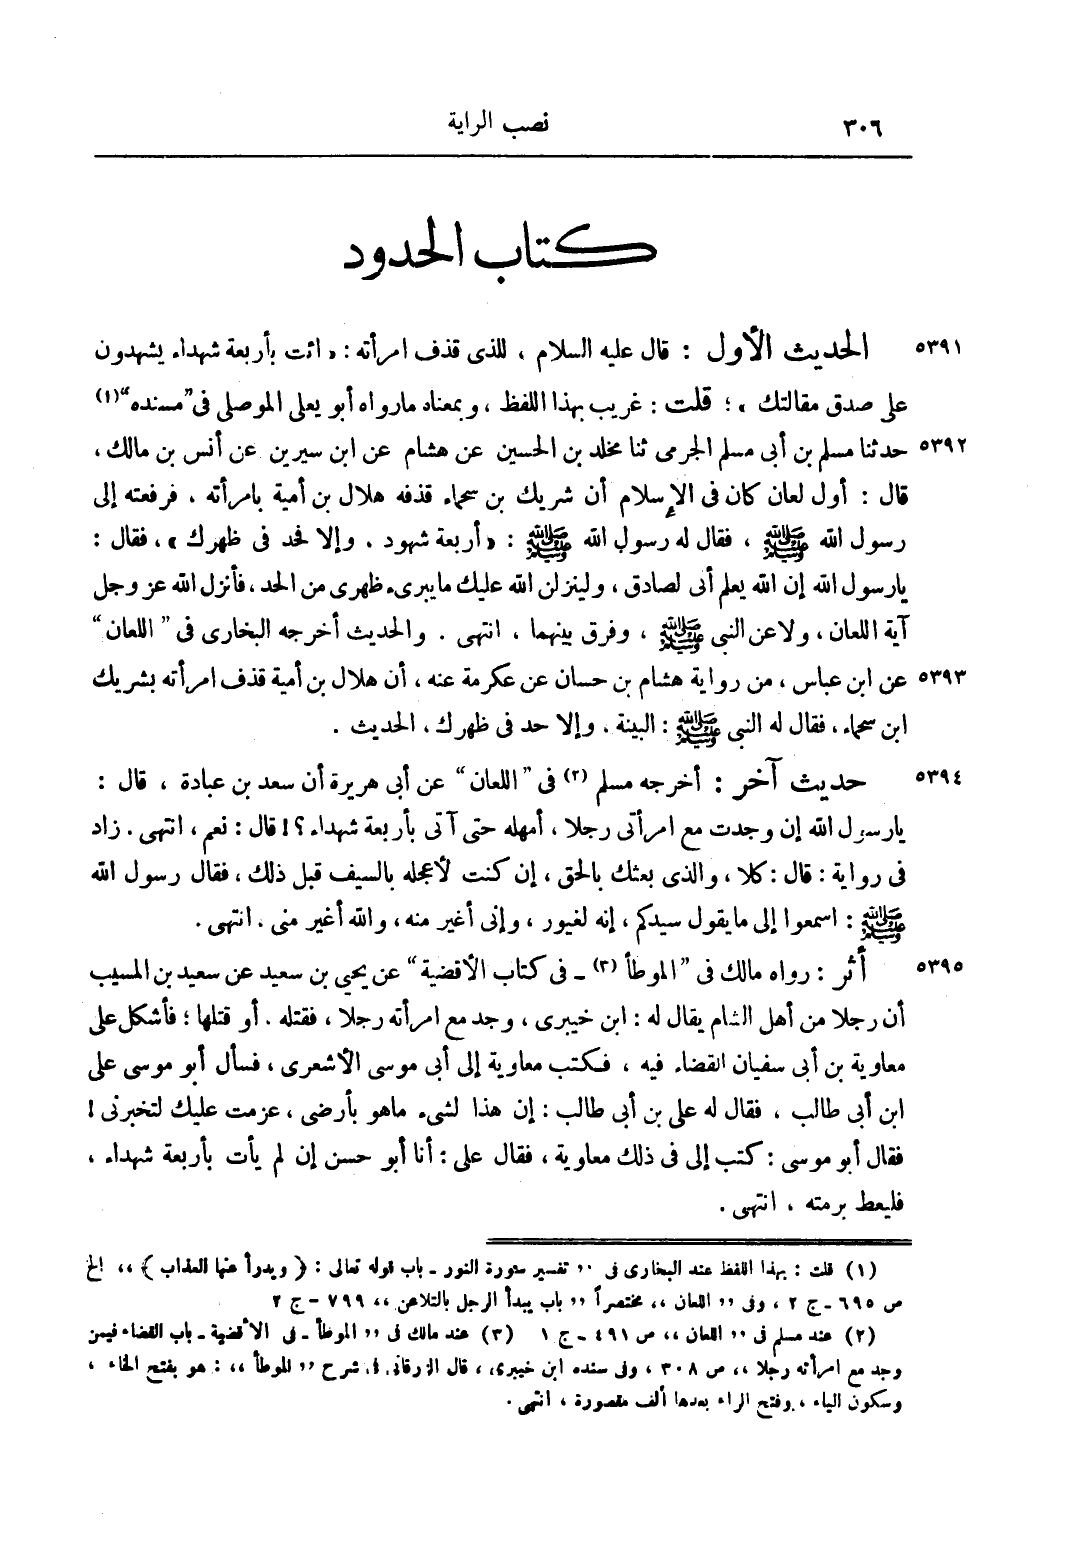 ٣٠٦ نصب الراية
كتاب الحدود
٥٣٩١ الحديث الأول : قال عليه السلام ، للذى قذف امرأته : « ائت بأربعة شهداء يشهدون
على صدق مقالتك » ؛ قلت : غريب بهذا اللفظ ، وبمعناه مارواه أبو يعلى الموصلى فى "مسنده" (١)
٥٣٩٢ حدثنا مسلم بن أبى مسلم الجرمى ثنا مخلد بن الحسين عن هشام عن ابن سيرين عن أنس بن مالك ،
قال : أول لعان كان فى الإسلام أن شريك بن سحماء قذفه هلال بن أمية بامرأته ، فرفعته إلى
رسول الله ﷺ ، فقال له رسول الله ﷺ : « أربعة شهود . وإلا فحد فى ظهرك » ، فقال :
يارسول الله إن الله يعلم أنى لصادق ، ولينزلن الله عليك مايبرىء ظهرى من الحد ، فأنزل الله عز وجل
آية اللعان ، ولاعن النبى ﷺ ، وفرق بينهما ، انتهى . والحديث أخرجه البخارى فى " اللعان "
٥٣٩٣ عن ابن عباس ، من رواية هشام بن حسان عن عكرمة عنه ، أن هلال بن أمية قذف امرأته بشريك
ابن سحماء ، فقال له النبى ﷺ : البينة . وإلا حد فى ظهرك ، الحديث .
٥٣٩٤ حديث آخر : أخرجه مسلم (٢) فى " اللعان " عن أبى هريرة أن سعد بن عبادة ، قال :
يارسول الله إن وجدت مع امرأتى رجلا ، أمهله حتى آتى بأربعة شهداء ؟! قال : نعم ، انتهى . زاد
فى رواية : قال : كلا ، والذى بعثك بالحق ، إن كنت لأعجله بالسيف قبل ذلك ، فقال رسول الله
ﷺ : اسمعوا إلى مايقول سيدكم ، إنه لغيور ، وإنى أغير منه ، والله أغير منى . انتهى .
٥٣٩٥ أثر : رواه مالك فى "الموطأ (٣) ـ فى كتاب الأقضية" عن يحيى بن سعيد عن سعيد بن المسيب
أن رجلا من أهل الشام يقال له : ابن خيبرى ، وجد مع امرأته رجلا ، فقتله . أو قتلها ؛ فأشكل على
معاوية بن أبى سفيان القضاء فيه ، فكتب معاوية إلى أبى موسى الأشعرى ، فسأل أبو موسى على
ابن أبى طالب ، فقال له على بن أبى طالب : إن هذا لشىء ماهو بأرضى ، عزمت عليك لتخبرنى !
فقال أبو موسى : كتب إلى فى ذلك معاوية ، فقال على : أنا أبو حسن إن لم يأت بأربعة شهداء ،
فليعط برمته ، انتهى .
(١) قلت : بهذا اللفظ عند البخارى فى ‹‹ تفسير سورة النور ـ باب قوله تعالى : ﴿ ويدرأ عنها العذاب ﴾ ›› الخ
ص ٦٩٥ ـ ج ٢ ، وفى ‹‹ اللعان ›› مختصراً ‹‹ باب يبدأ الرجل بالتلاعن ›› ٧٩٩ – ج ٢
(٢) عند مسلم فى ‹‹ اللعان ›› ص ٤٩١ ـ ج ١ (٣) عند مالك فى ‹‹ الموطأ ـ فى الأقضية ـ باب القضاء فيمن
وجد مع امرأته رجلا ›› ص ٣٠٨ ، وفى سنده ابن خيبرى ، قال الزرقانى فى شرح ‹‹ الموطأ ›› : هو بفتح الخاء ،
وسكون الياء ، وفتح الراء بعدها ألف مقصورة ، انتهى .